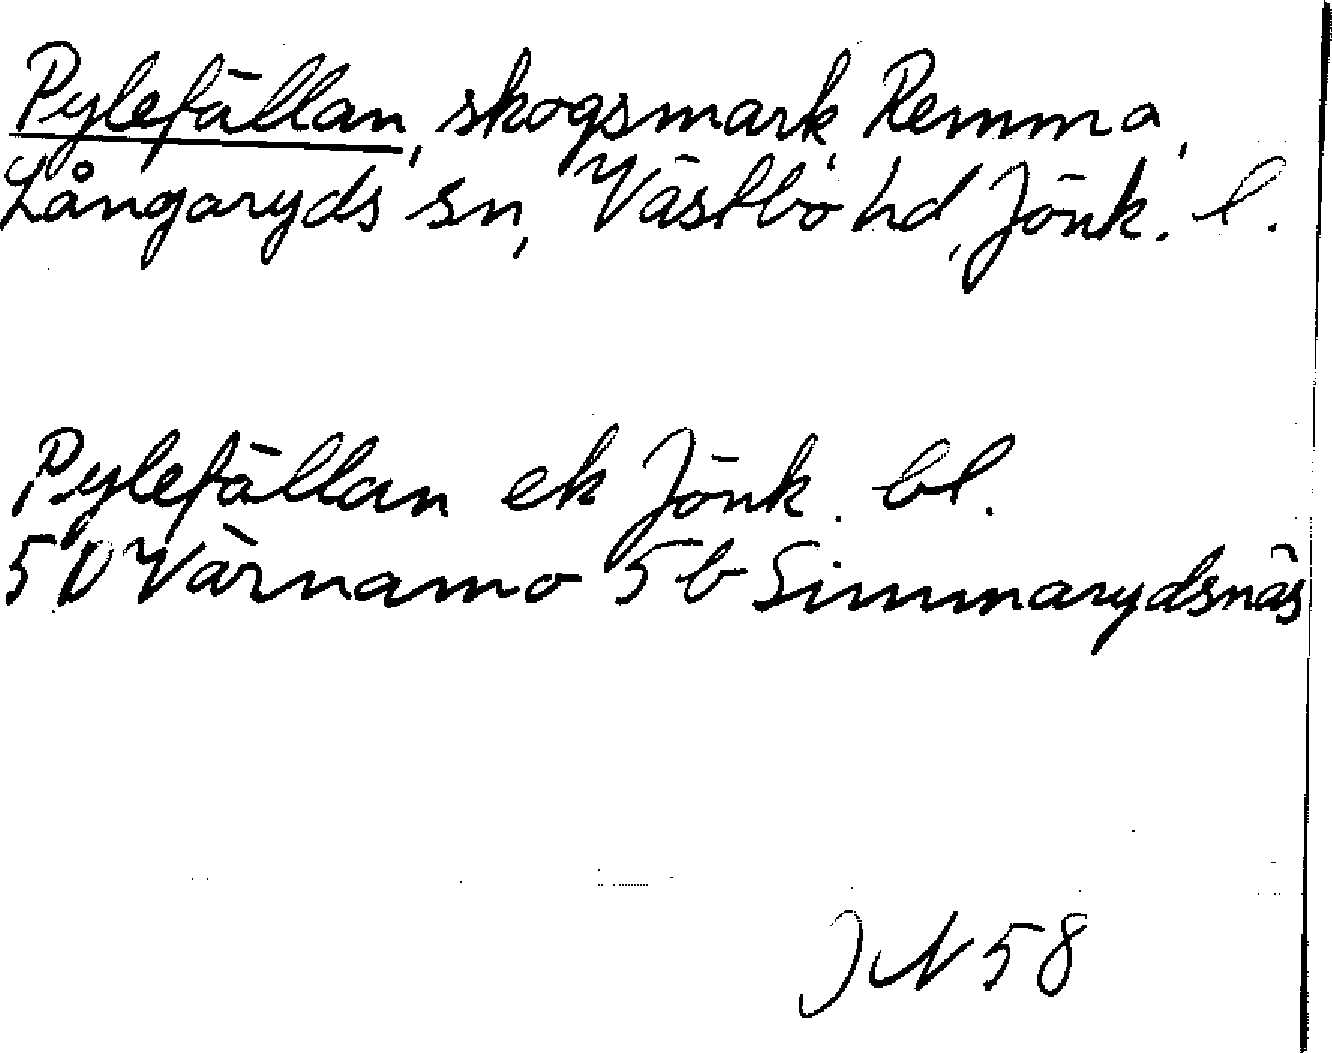 Pylefällan, skogsmark, Remma,
Långaryds sn, Västbo hd, Jönk. l.
Pylefällan ek Jönk. bl.
5D Värnamo 5b Simmarydsnäs
JN 58